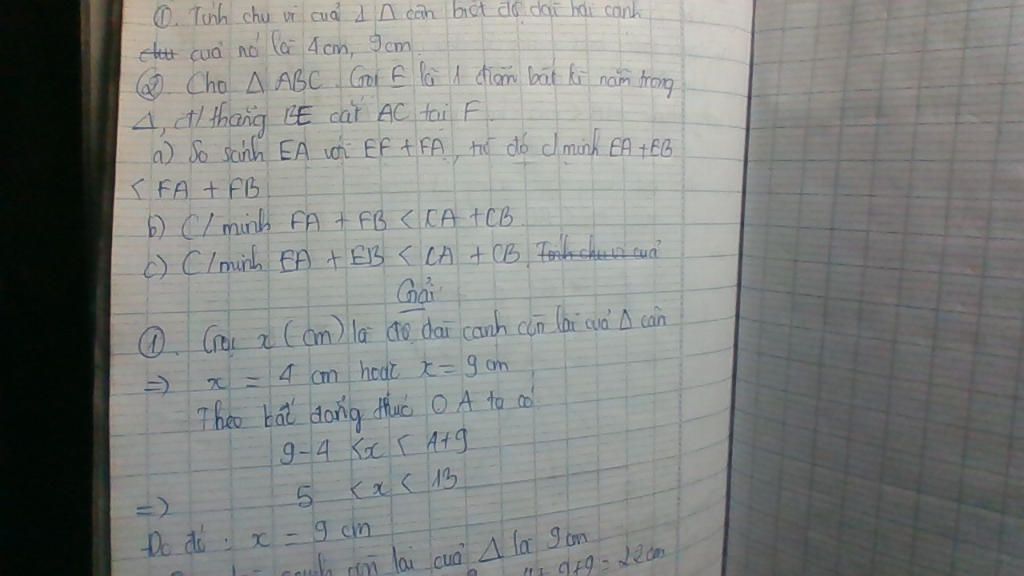 ①. Tính chu vi của 1 Δ cân biết độ dài hai cạnh
của nó là 4cm, 9cm.
②. Cho Δ ABC. Gọi E là 1 điểm bất kì nằm trong
Δ, đ/thẳng BE cắt AC tại F.
a) So sánh EA với EF + FA, từ đó c/minh EA + EB
< FA + FB
b) C/minh FA + FB < CA + CB
c) C/minh EA + EB < CA + CB
Giải
①. Gọi x (cm) là độ dài cạnh còn lại của Δ cân
=> x = 4 cm hoặc x = 9 cm
Theo bất đẳng thức Δ ta có
9-4 < x < 4+9
=> 5 < x < 13
Do đó : x = 9 cm
cạnh còn lại của Δ là 9cm
4 + 9 + 9 = 22 cm